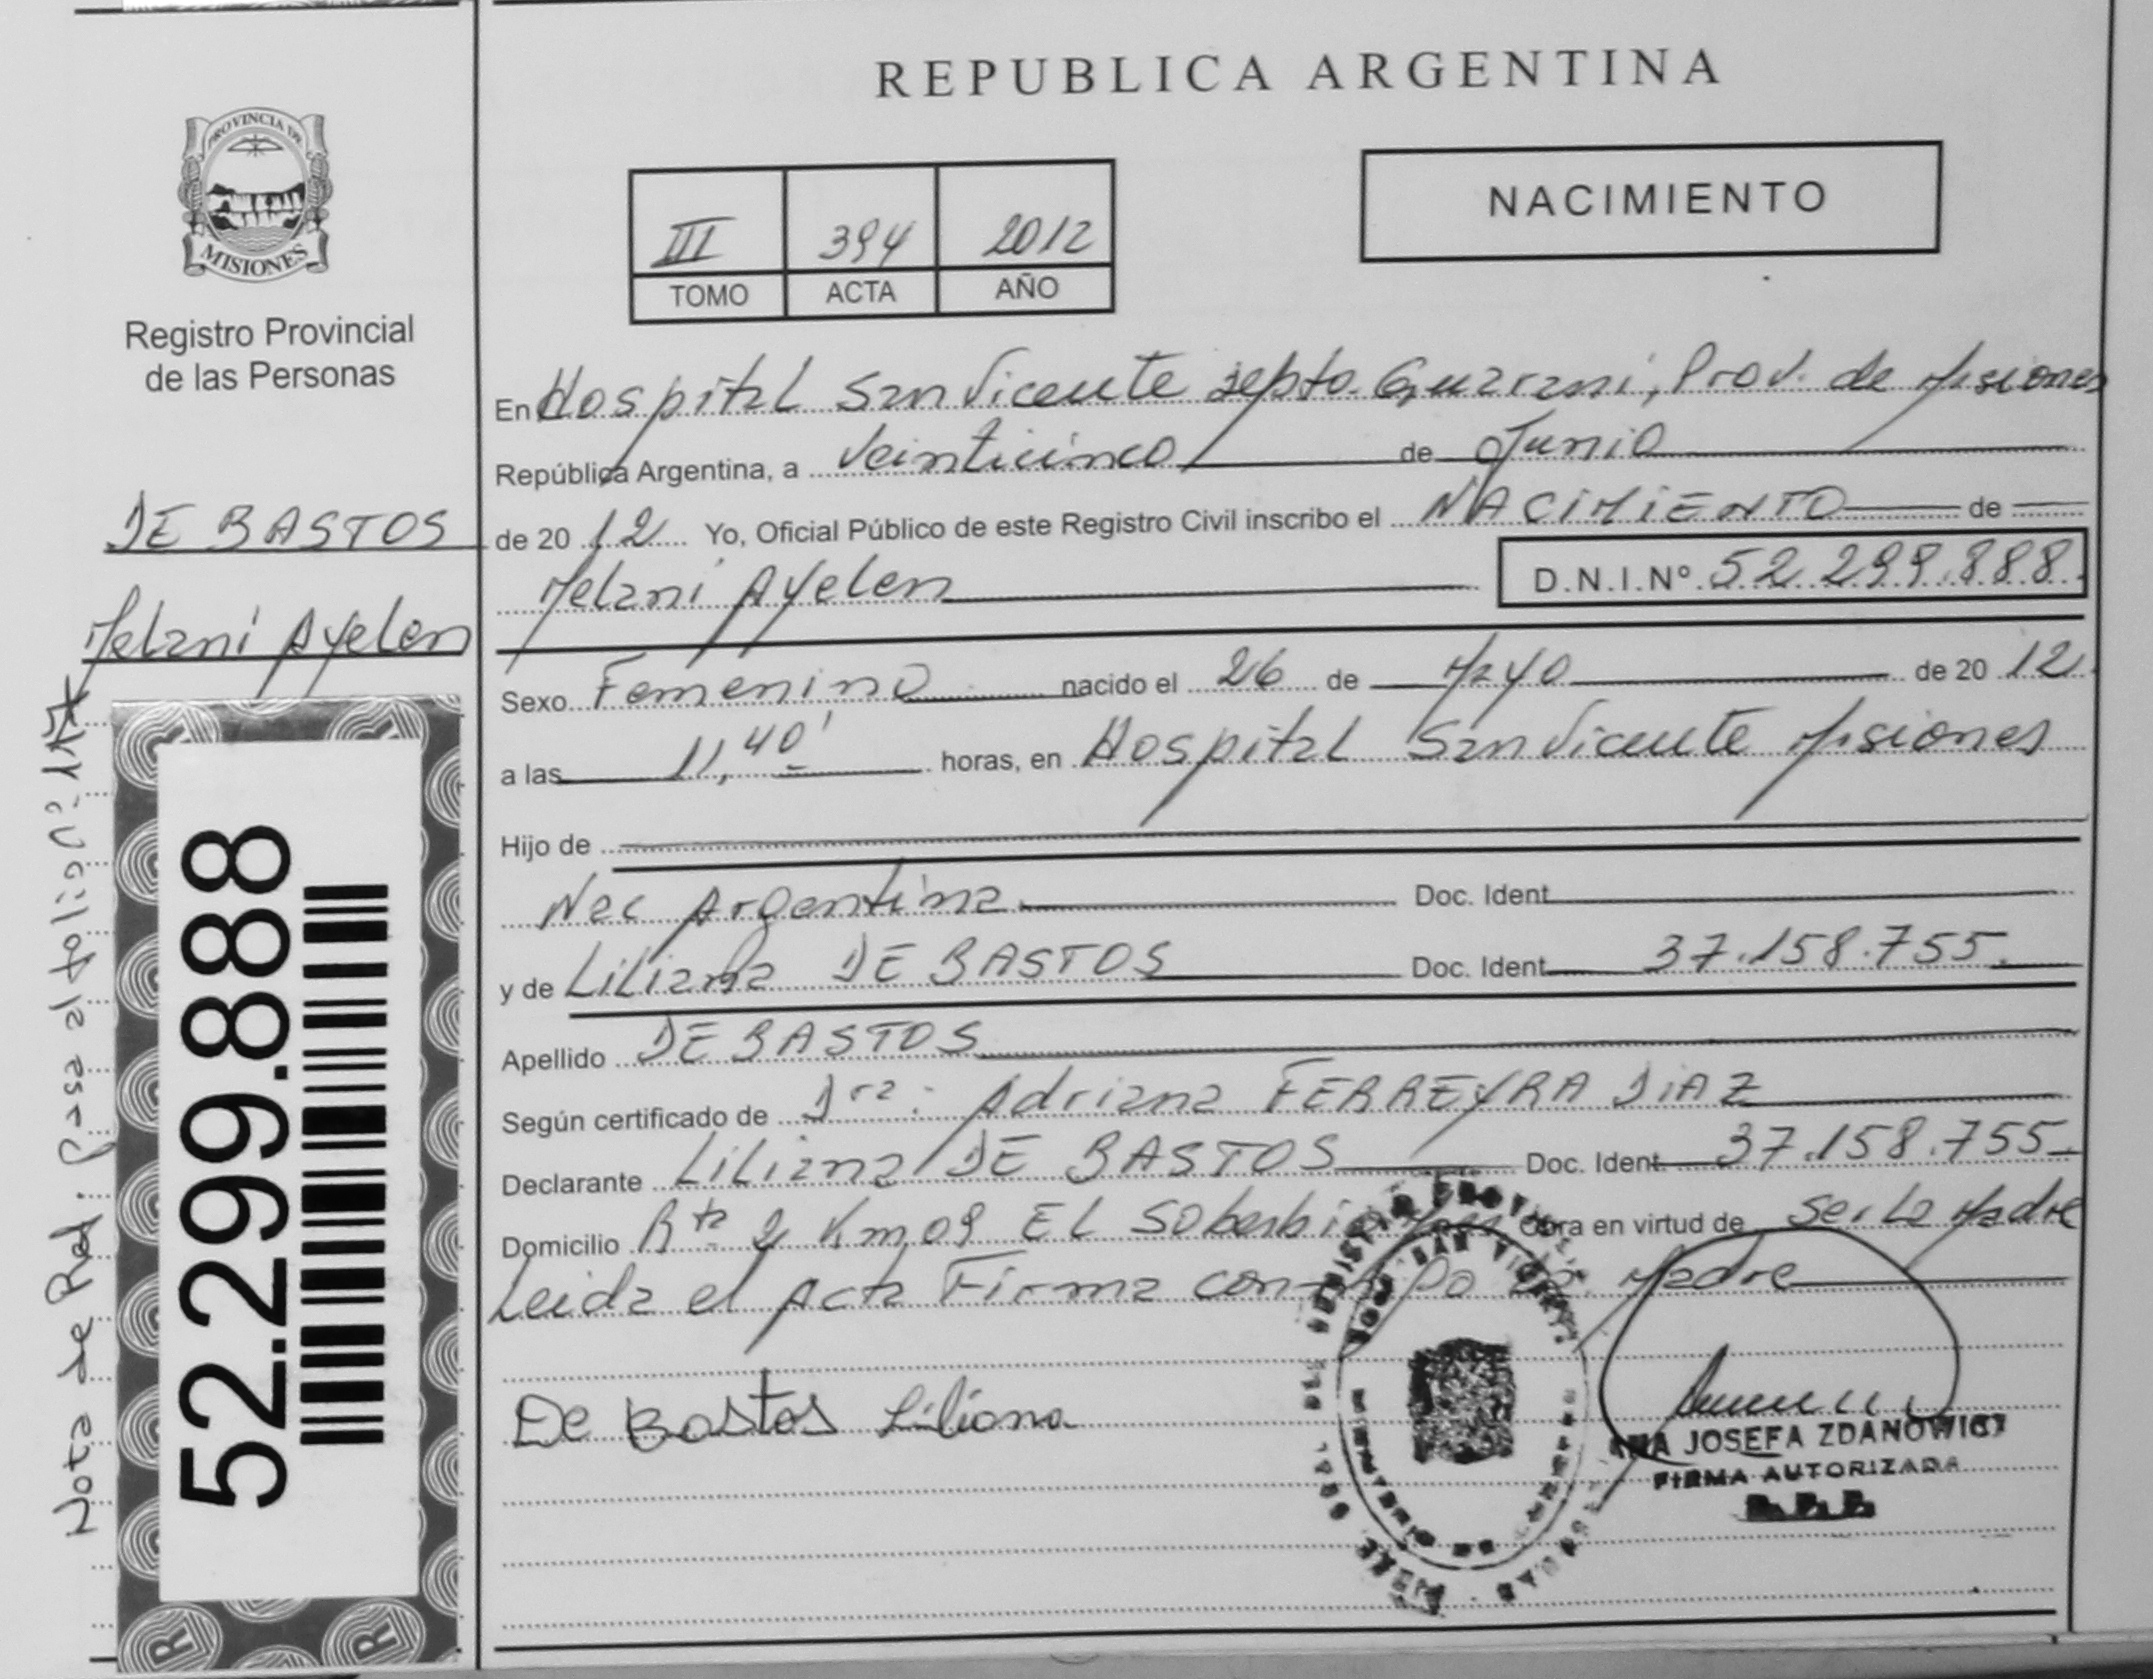 REPUBLICA ARGENTINA
PROVINCIA DE
MISIONES
Registro Provincial
de las Personas
NACIMIENTO
III 394 2012
TOMO ACTA AÑO
En Hospital San Vicente Depto. Guarani, Prov. de Misiones
República Argentina, a veinticinco de Junio
de 20 12 Yo, Oficial Público de este Registro Civil inscribo el NACIMIENTO de
Melani Ayelen D.N.I.Nº 52.299.888.
DE BASTOS
Melani Ayelen
Sexo Femenino nacido el 26 de Mayo de 20 12
a las 11,40' horas, en Hospital San Vicente Misiones
Hijo de
Nac Argentina Doc. Ident
y de Liliana DE BASTOS Doc. Ident 37.158.755.
Apellido DE BASTOS
Según certificado de Dra: Adriana FERREYRA DIAZ
Declarante Liliana DE BASTOS Doc. Ident 37.158.755
Domicilio Rta 2 Km 09 El Soberbio Obra en virtud de ser la Madre
Leida el Acta Firma con la Madre
De Bastos Liliana
JOSEFA ZDANOWICZ
FIRMA AUTORIZADA
52.299.888
Nota de Ref. Pasa al folio nº 117